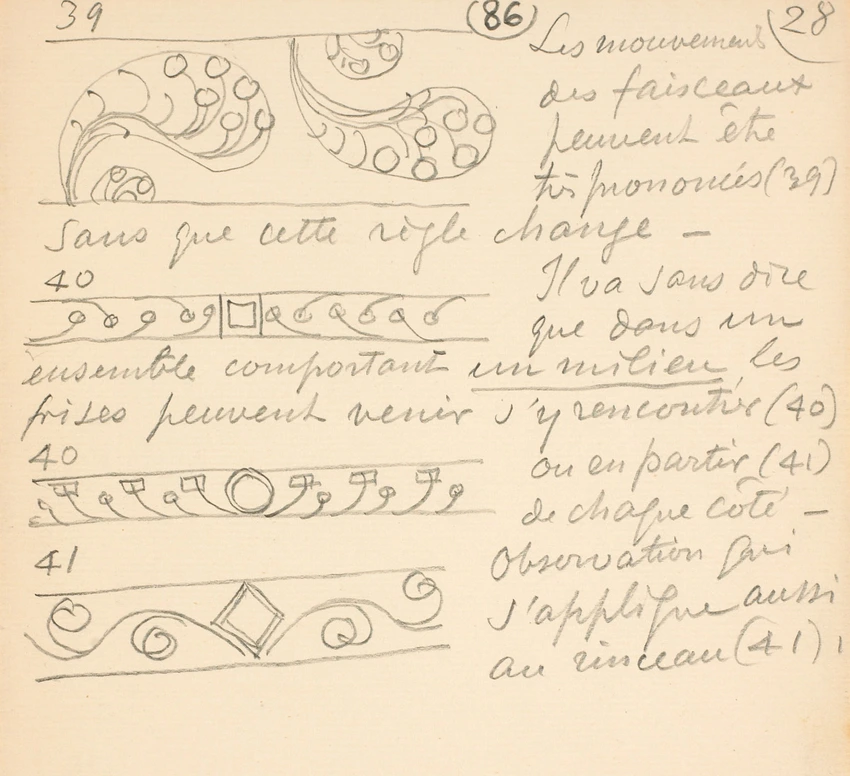 39
(86)
28
Les mouvements
des faisceaux
peuvent être
très prononcés (39)
sans que cette règle change —
40
Il va sans dire
que dans un
ensemble comportant un milieu, les
frises peuvent venir s'y rencontrer (40)
40
ou en partir (41)
de chaque côté —
41
Observation qui
s'applique aussi
au rinceau (41)